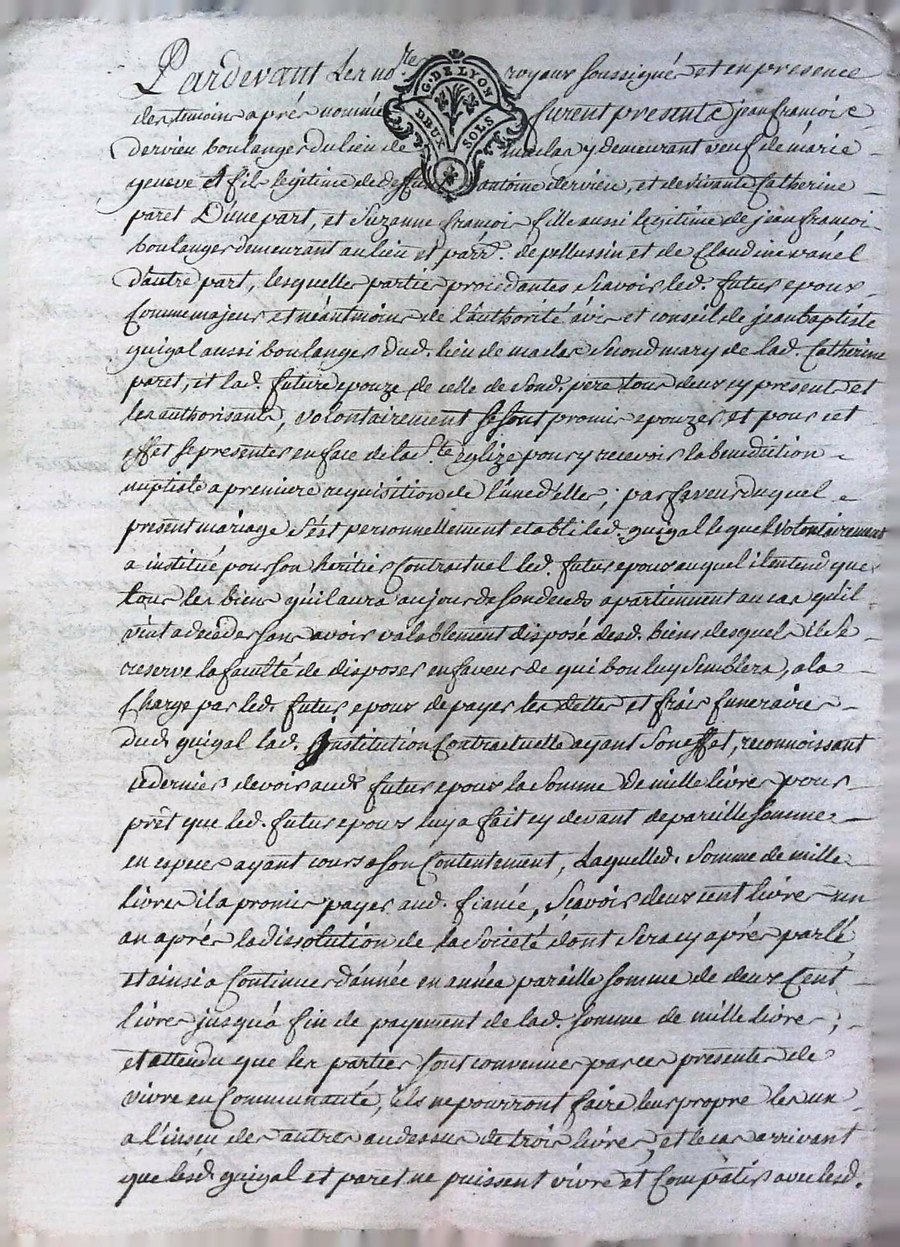 G. DE LYON
DEUX SOLS
Pardevant les no.re royaux soussigné et en presence
des temoins aprés nommé furent presents jean françois
dervieu boulanger du lieu de maclas y demeurant veuf de marie
geneve et fils legitime de deffunt antoine dervieu, et de vivante Catherine
paret D'une part, et Suzanne françois fille aussi legitime de jean françois
boulanger demeurant au lieu et parr.e de pellussin et de Claudine vanel
d'autre part, lesquelles parties procedantes Scavoir led. futur epoux
Comme majeur et néantmoins de l'authorité avis et conseil de jean baptiste
guigal aussi boulanger dud. lieu de maclas Second mary de lad. Catherine
paret, et lad. future epouze de celle de Sond. pere tous deux cy present et
les authorisants, volontairement se sont promis epouzer et pour cet
effet se presenter en face de la S.te eglize pour y recevoir la benediction
nuptiale a premiere requisition de l'une d'elles; par faveur duquel
present mariage s'est personnellement etabli led. guigal lequel volontairement
a institué pour son heritier Contractuel led. futur epoux auquel il entend que
tous les biens qu'il aura au jour de son deceds apartiennent au cas qu'il
vint a deceder sans avoir valablement disposé desd. biens desquels il se
reserve la faculté de disposer en faveur de qui bon luy Semblera, a la
Charge par led. futur epoux de payer les dettes et frais funeraires
dud. guigal lad. institution Contractuelle ayant Son effet, reconnoissant
ce dernier devoir aud. futur epoux la Somme de mille livres pour
prêt que led. futur epoux luy a fait cy devant de pareille Somme
en especes ayant cours a son Contentement, Laquelle d. Somme de mille
livres il a promis payer aud. fiancé, Scavoir deux cent livres un
an aprés la dissolution de la Societé dont Sera cy aprés parlé,
et ainsi a Continuer d'année en année pareille Somme de deux Cent
livres jusqu'a fin de payement de lad. Somme de mille livres;
et attendu que les parties sont convenues par ces presentes de
vivre en Communauté, ils ne pourront faire leur propre les un
a l'inseu des autres au dessus de trois livres, et le cas arrivant
que lesd. guigal et paret ne puissent vivre et Compatir avec lesd.